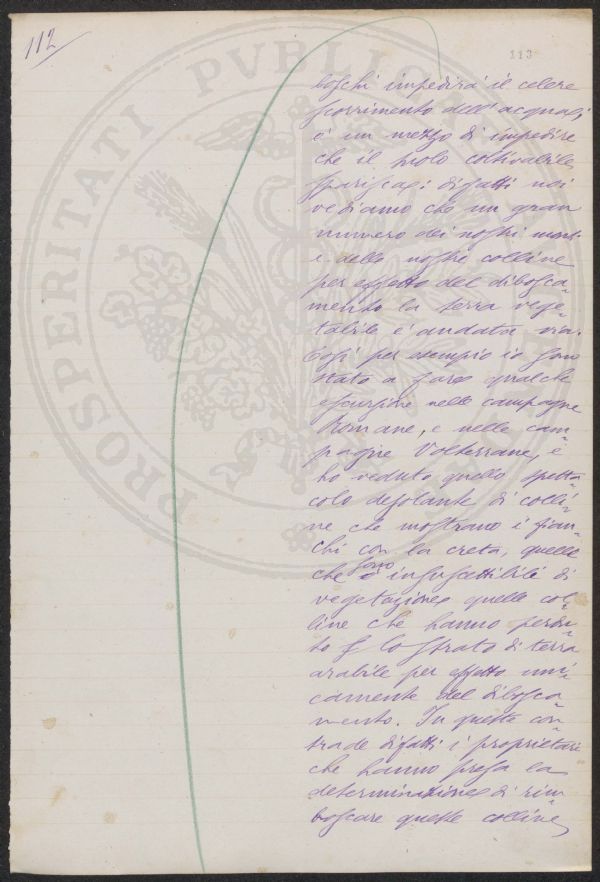 112
113
PROSPERITATI PVBLICAE
boschi impedirà il celere
scorrimento dell'acqua;
è un mezzo di impedire
che il suolo coltivabile
sparisca: difatti noi
vediamo che un gran
numero dei nostri monti
e delle nostre colline
per effetto del disbosca-
mento la terra vege-
tabile è andata via.
Così per esempio io sono
stato a fare qualche
escursione nelle campagne
Romane, e nelle cam-
pagne Volterrane, e
ho veduto quello spetta
colo desolante di colli-
ne che mostrano i fian-
chi con la creta, quelle
che sono insuscettibili di
vegetazione quelle col-
line che hanno perdu-
to lo strato di terra
arabile per effetto uni-
camente del disbosca-
mento. In queste con-
trade difatti i proprietari
che hanno presa la
determinazione di rim-
boscare queste colline